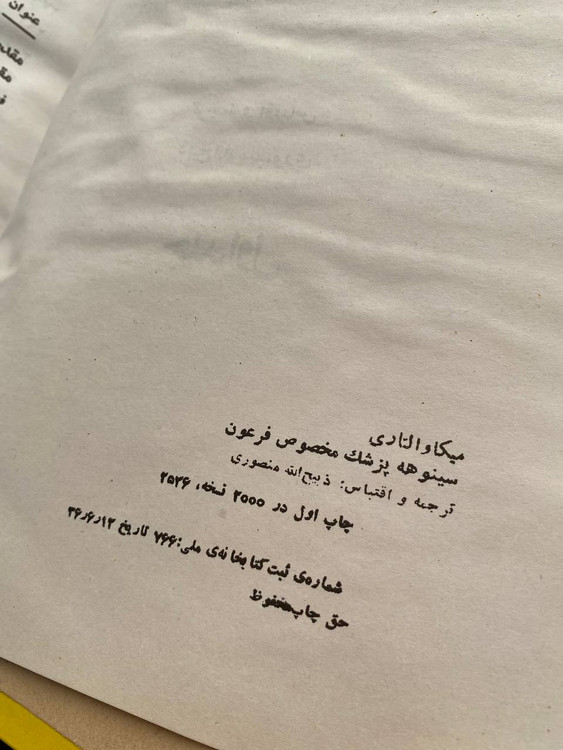 عنوان
میکا والتاری
سینوهه پزشك مخصوص فرعون
ترجمه و اقتباس: ذبیح‌الله منصوری
چاپ اول در ۲۰۰۰ نسخه، ۲۵۳۶
شماره‌ی ثبت کتابخانه‌ی ملی: ۷۶۶ تاریخ ۳۶٫۶٫۱۲
حق چاپ محفوظ